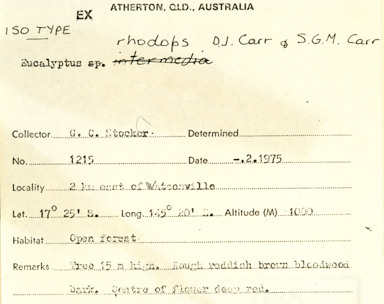 ATHERTON, QLD., AUSTRALIA
EX
ISO TYPE
rhodops D.J. Carr & S.G.M. Carr
Eucalyptus sp. intermedia
Collector G. C. Stocker. Determined
No. 1215 Date -.2.1975
Locality 2 km east of Watsonville
Lat. 17° 25' S. Long. 145° 20' E. Altitude (M) 1000
Habitat Open forest
Remarks Tree 15 m high. Rough reddish brown bloodwood
bark. Centre of flower deep red.